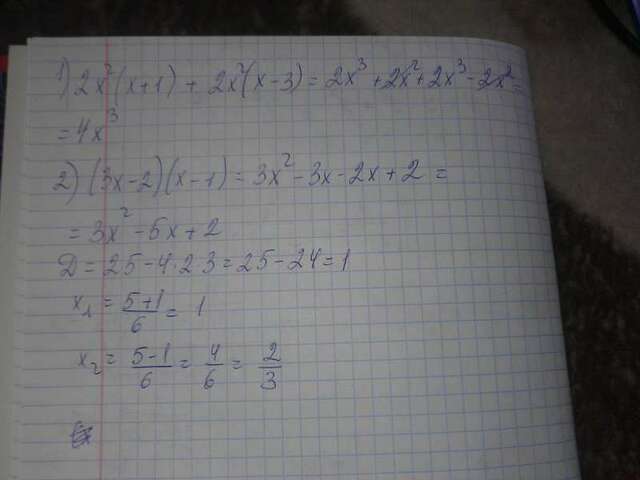 1) 2x²(x+1) + 2x²(x-3) = 2x³ + 2x² + 2x³ - 2x² =
= 4x³
2) (3x-2)(x-1) = 3x² - 3x - 2x + 2 =
= 3x² - 5x + 2
Д = 25 - 4·2·3 = 25 - 24 = 1
x₁ = (5+1)/6 = 1
x₂ = (5-1)/6 = 4/6 = 2/3